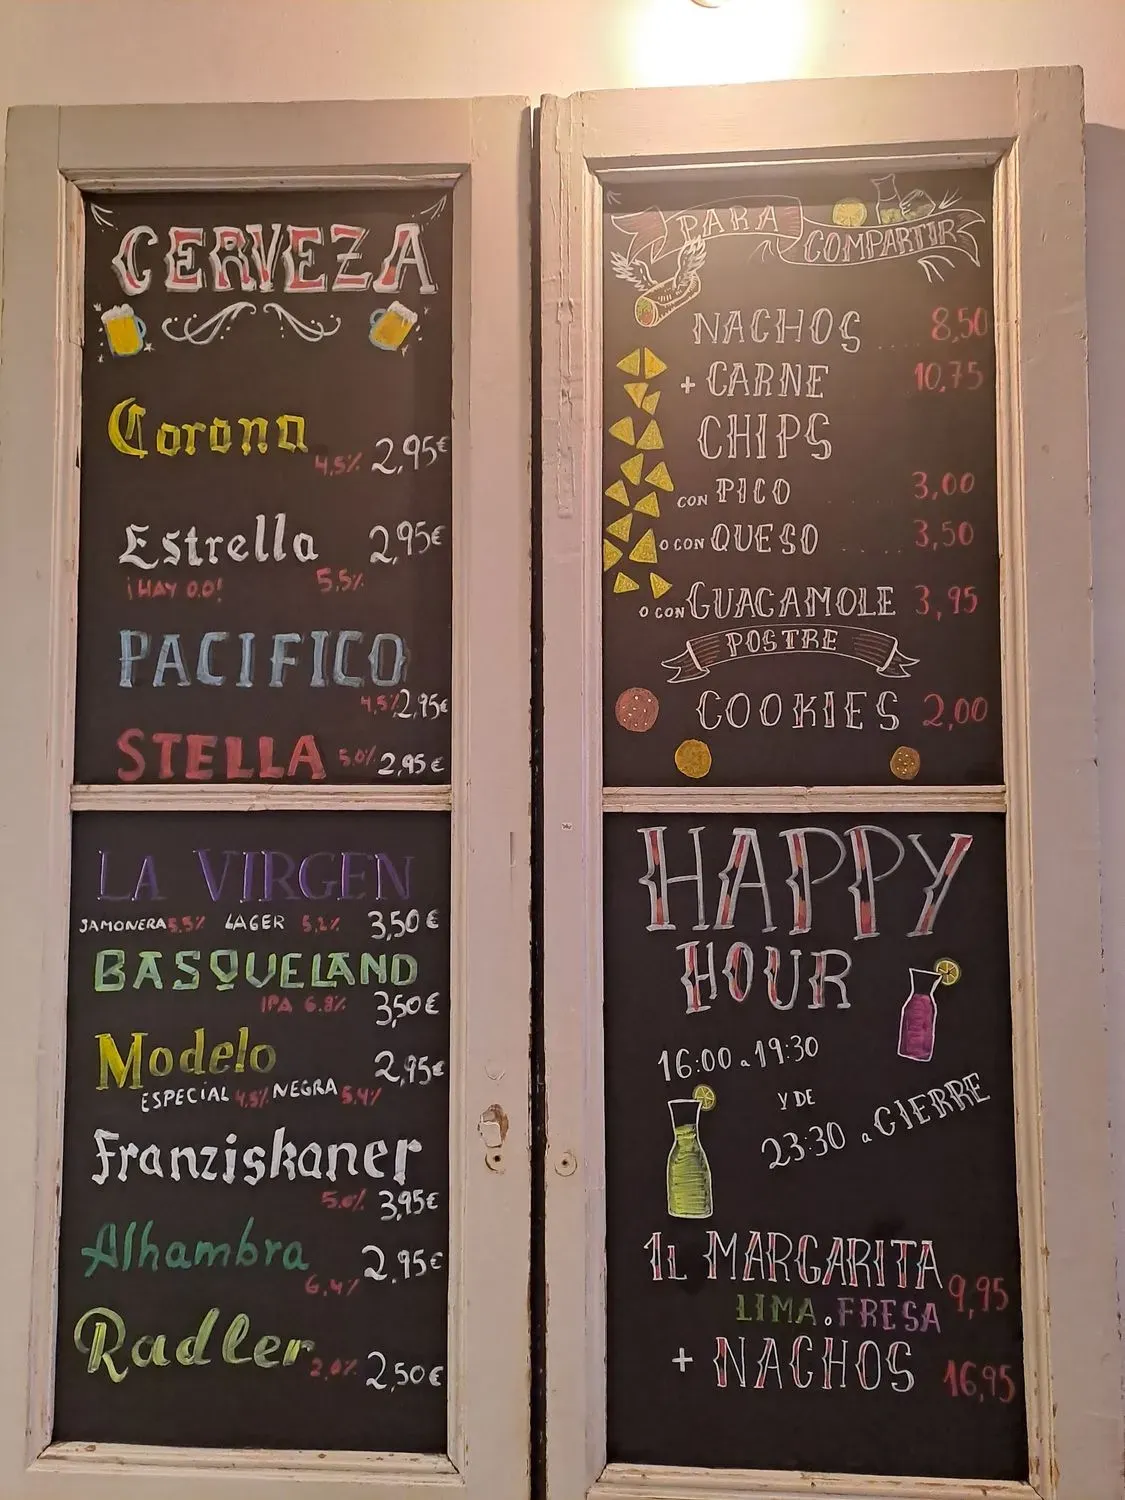 CERVEZA
Corona 4,5% 2,95€
Estrella 2,95€
¡HAY 0.0! 5,5%
PACIFICO
4,5% 2,95€
STELLA 5,0% 2,95€
LA VIRGEN
JAMONERA 5.5% LAGER 5,2% 3,50€
BASQUELAND
IPA 6.8% 3,50€
Modelo 2,95€
ESPECIAL 4,5% NEGRA 5,4%
Franziskaner
5.0% 3,95€
Alhambra
6,4% 2.95€
Radler 2,0% 2,50€
PARA COMPARTIR
NACHOS .... 8,50
+ CARNE 10,75
CHIPS
CON PICO 3,00
O CON QUESO ..... 3,50
O CON GUACAMOLE 3,95
POSTRE
COOKIES 2,00
HAPPY
HOUR
16:00 a 19:30
Y DE
23:30 a CIERRE
1L MARGARITA 9,95
LIMA o FRESA
+ NACHOS 16,95